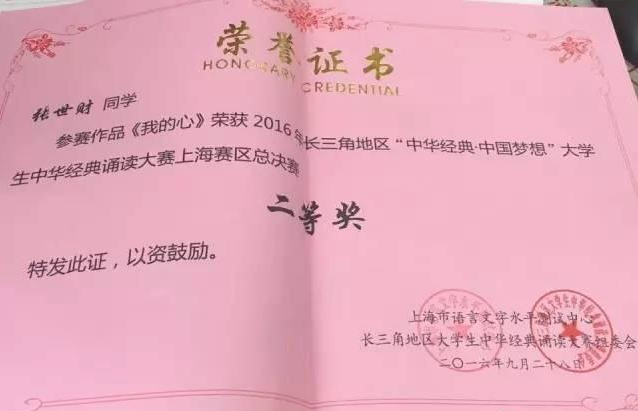 荣誉证书
HONORARY CREDENTIAL
张世财 同学
参赛作品《我的心》荣获 2016 年长三角地区“中华经典·中国梦想”大学
生中华经典诵读大赛上海赛区总决赛
二等奖
特发此证，以资鼓励。
上海市语言文字水平测试中心
长三角地区大学生中华经典诵读大赛组委会
二〇一六年九月二十八日